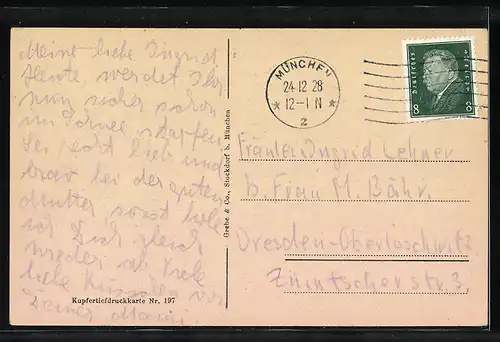 Meine liebe Ingrid.
Heute werdet Ihr
nun sicher schon
im Schnee stapfen.
Sei recht lieb und
brav bei der guten
Mutter, sonst hole
ich Dich gleich
wieder ab. Viele
liebe Küsschen von
Deiner Mami.
Kupfertiefdruckkarte Nr. 197
Grebe & Co., Stockdorf b. München
MÜNCHEN
24.12.28
12-1 N
2
Deutsches Reich
8 8
Fräulein Ingrid Lehner
b. Frau M. Bähr.
Dresden-Oberloschwitz